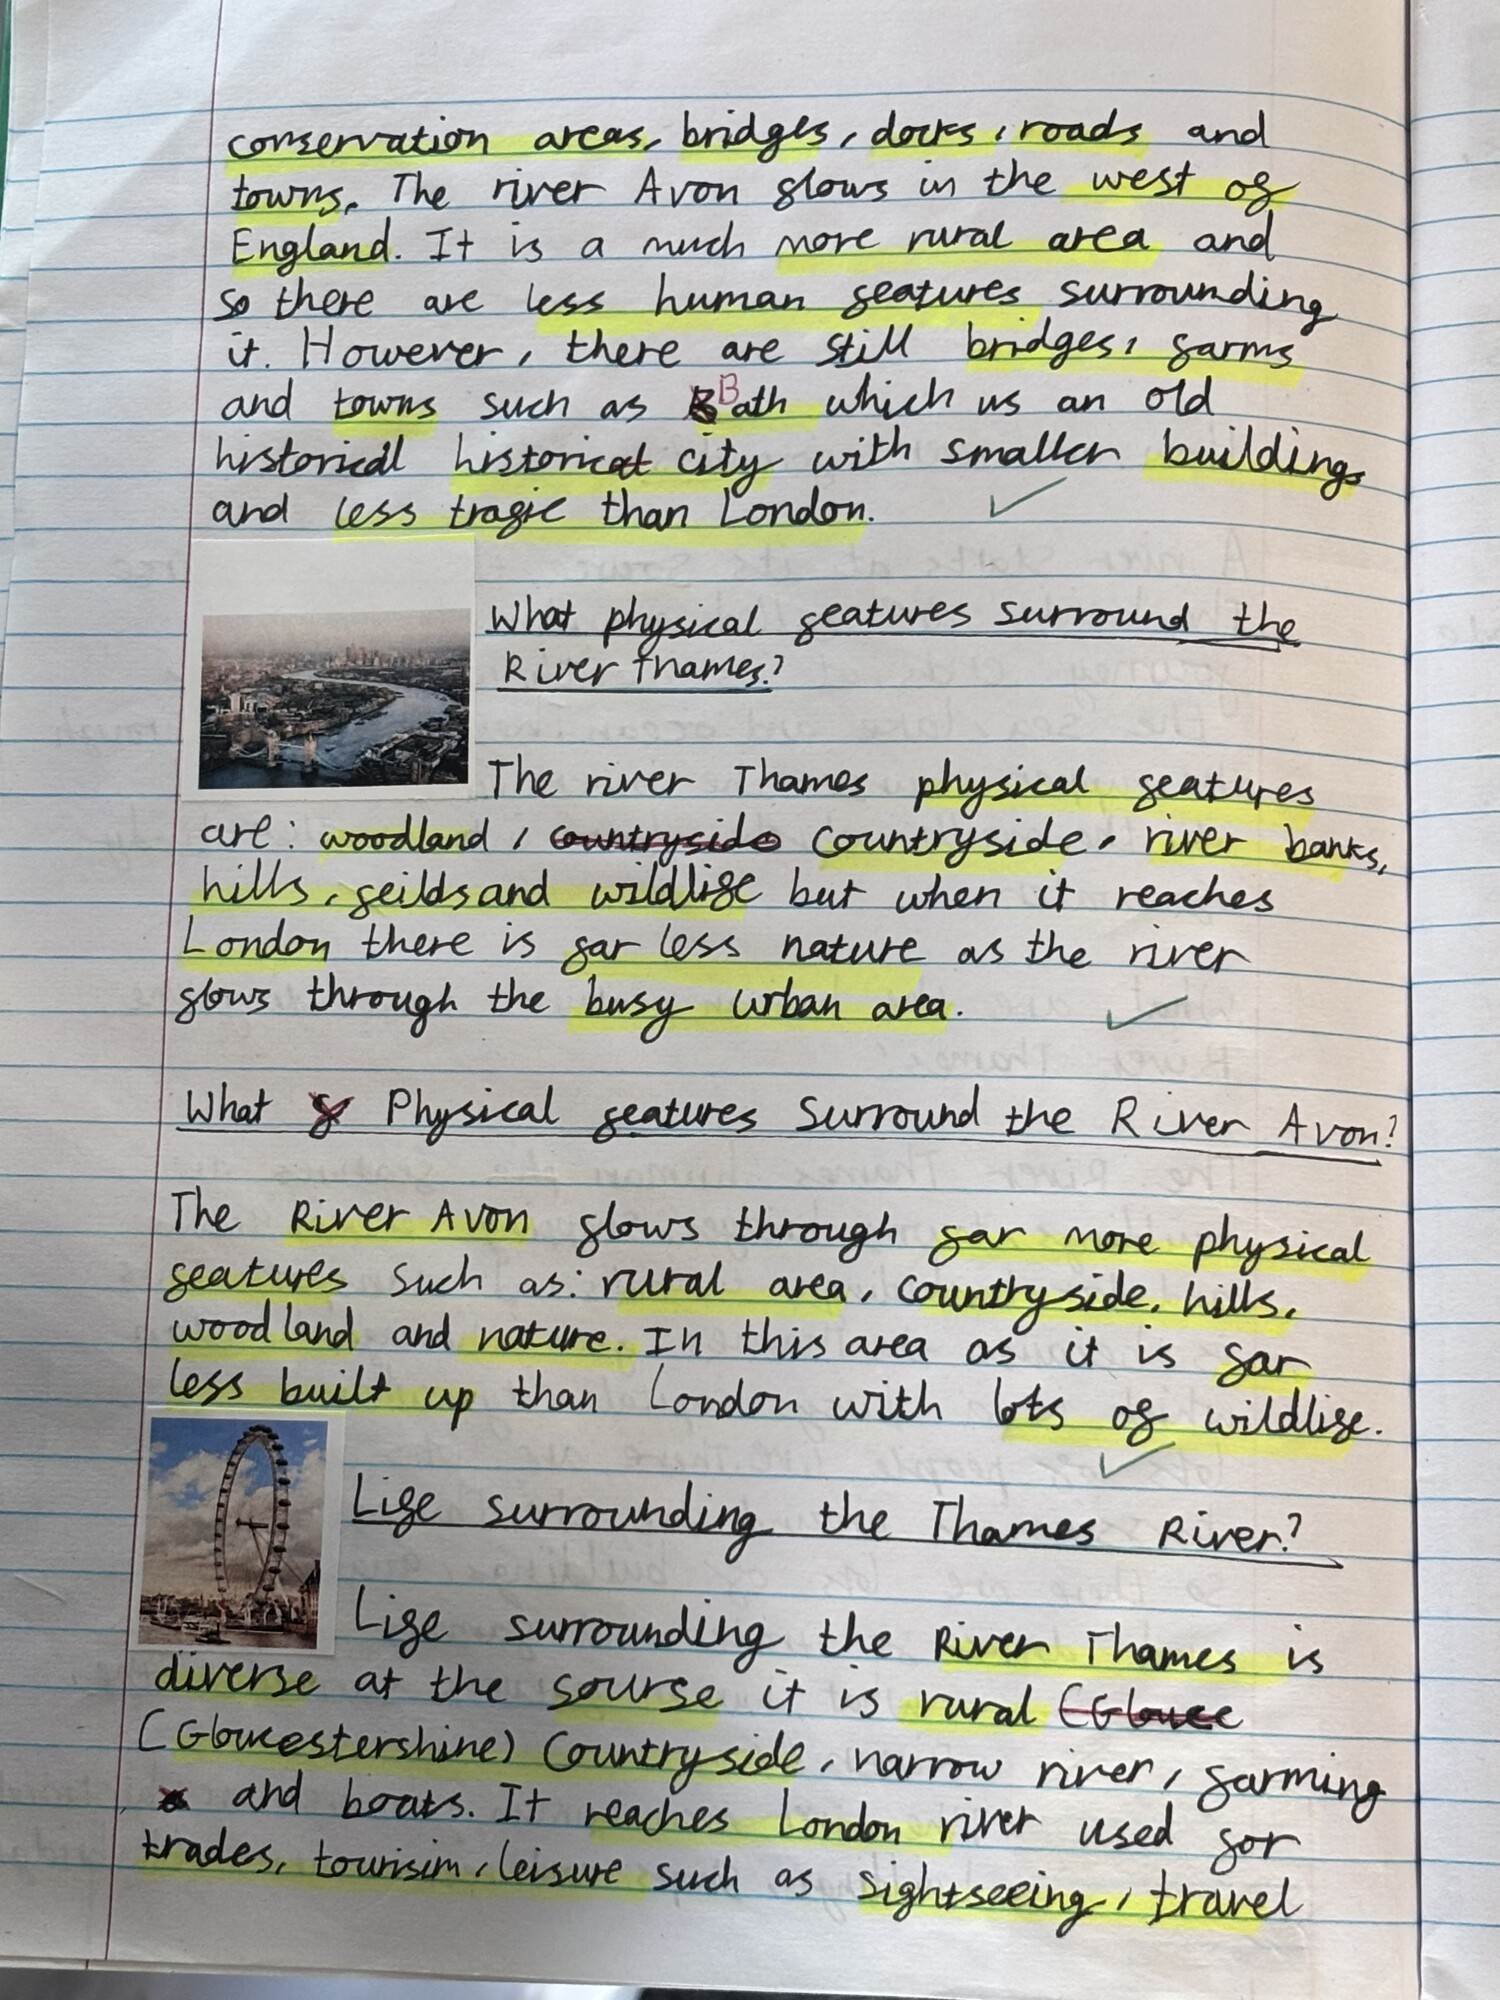 conservation areas, bridges, docks, roads and
towns. The river Avon flows in the west of
England. It is a much more rural area and
so there are less human features surrounding
it. However, there are still bridges, farms
and towns such as Bath which us an old
historical historical city with smaller buildings
and less trafic than London.
What physical features surround the
River thames?
The river Thames physical features
are: woodland, countryside countryside, river banks,
hills, feilds and wildlife but when it reaches
London there is far less nature as the river
flows through the busy urban area.
What Physical features Surround the River Avon?
The River Avon flows through far more physical
features such as: rural area, countryside, hills,
woodland and nature. In this area as it is far
less built up than London with lots of wildlife.
Life surrounding the Thames River?
Life surrounding the River Thames is
diverse at the sourse it is rural (Glouce
(Gloucestershine) Countryside, narrow river, farming
and boats. It reaches London river used for
trades, tourisim, leisure such as sightseeing, travel